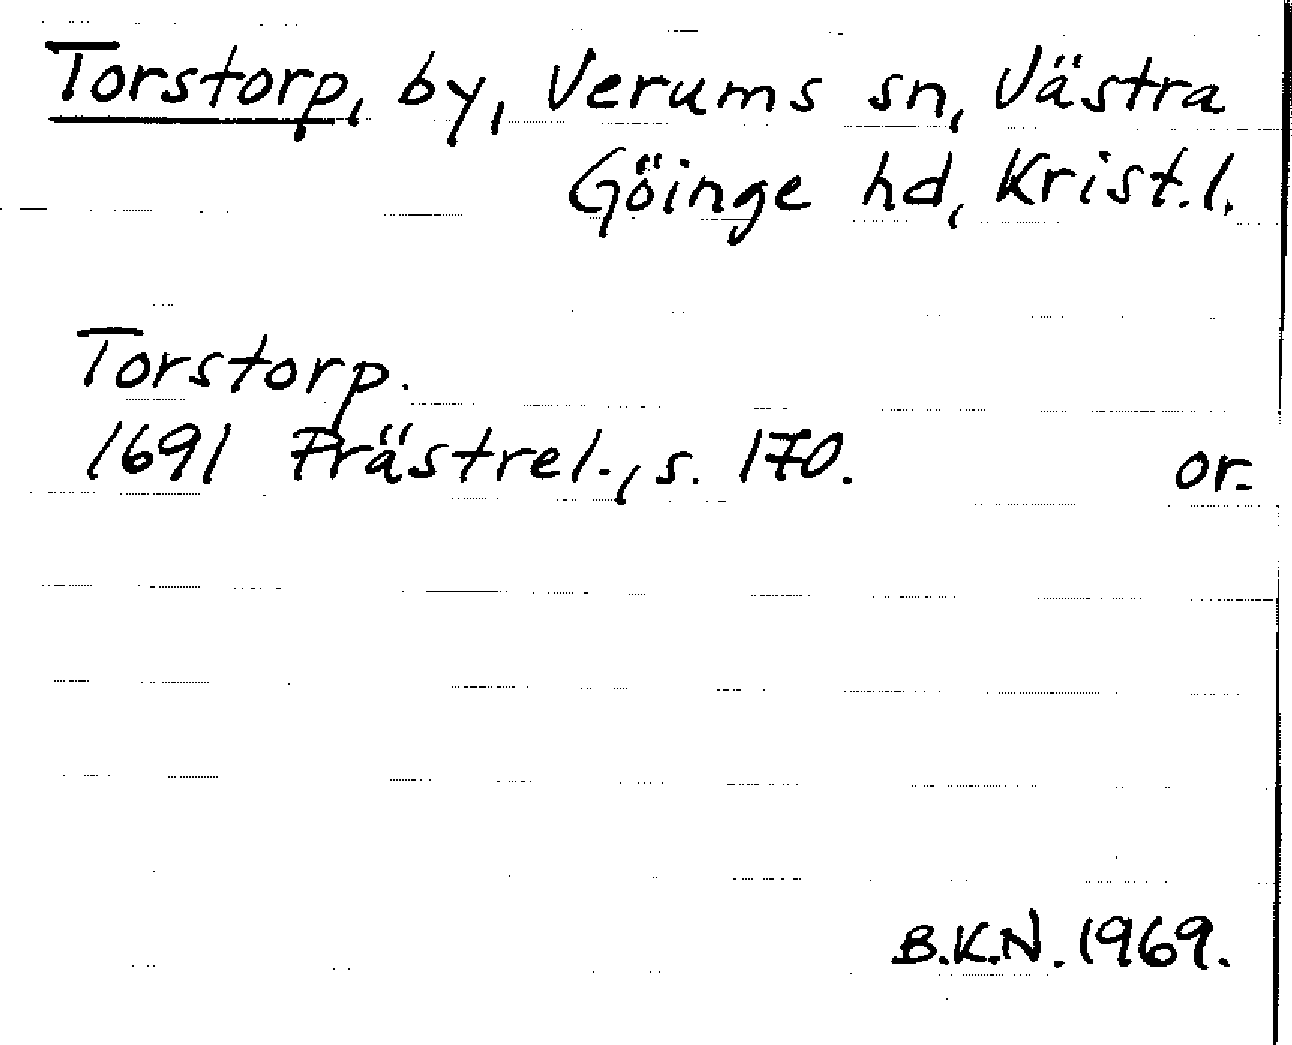 Torstorp, by, Verums sn, Västra
Göinge hd, Krist.l.
Torstorp.
1691 Prästrel., s. 170. or.
B.K.N. 1969.